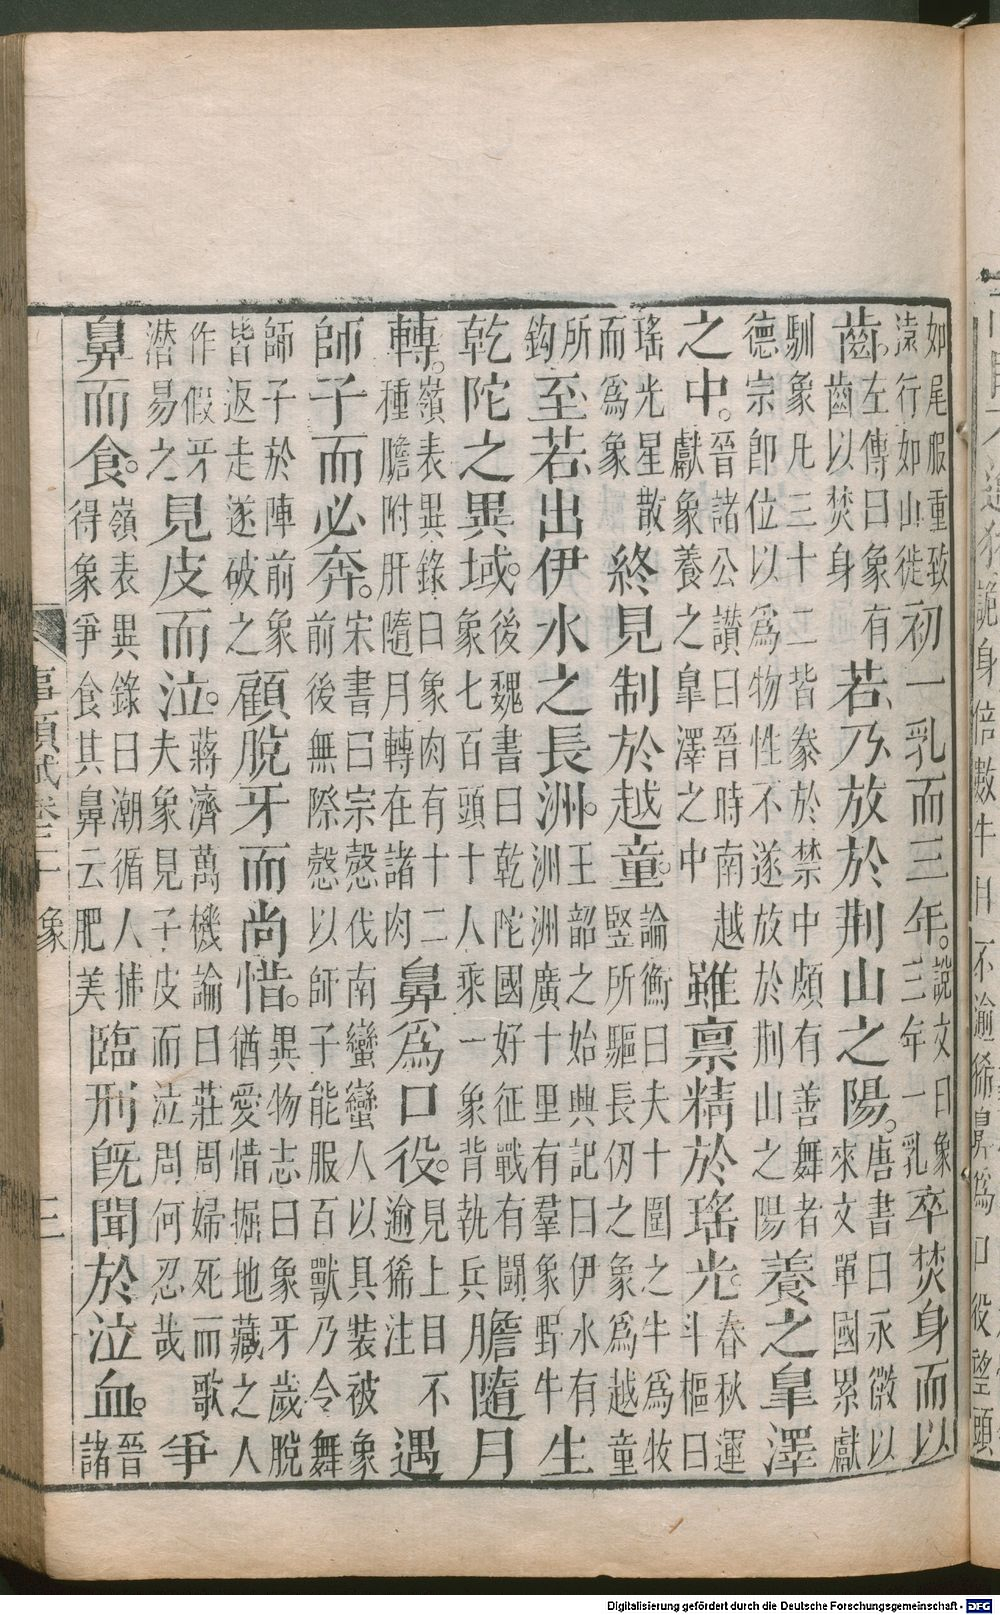 詭身倍數牛目不逾狶鼻爲口役望頭
如尾服重致遠行如山徙初一乳而三年。說文曰象三年一乳卒焚身而以
齒。左傳曰象有齒以焚身若乃放於荆山之陽。唐書曰永徽以來文單國累獻
馴象凡三十二皆豢於禁中頗有善舞者德宗即位以爲物性不遂放於荆山之陽養之皐澤
之中。晉諸公讃曰晉時南越獻象養之皐澤之中雖禀精於瑤光。春秋運斗樞曰
瑤光星散而爲象終見制於越童。論衡曰夫十圍之牛爲牧竪所驅長仞之象爲越童
所鈎至若出伊水之長洲。王韶之始興記曰伊水有洲洲廣十里有羣象野牛生
乾陀之異域。後魏書曰乾陀國好征戰有鬬象七百頭十人乘一象背執兵膽隨月
轉。嶺表異錄曰象肉有十二種膽附肝隨月轉在諸肉鼻爲口役。見上目不逾狶注遇
師子而必奔。宋書曰宗慤伐南蠻蠻人以具裝被象前後無際慤以師子能服百獸乃令舞
師子於陣前象皆返走遂破之顧脫牙而尚惜。異物志曰象牙歲脫猶愛惜掘地藏之人
作假牙潜易之見皮而泣。蔣濟萬機論曰莊周婦死而歌夫象見子皮而泣周何忍哉爭
鼻而食。嶺表異錄曰潮循人捕得象爭食其鼻云肥美臨刑旣聞於泣血。晉諸
事類賦卷二十 象 三
Digitalisierung gefördert durch die Deutsche Forschungsgemeinschaft - DFG